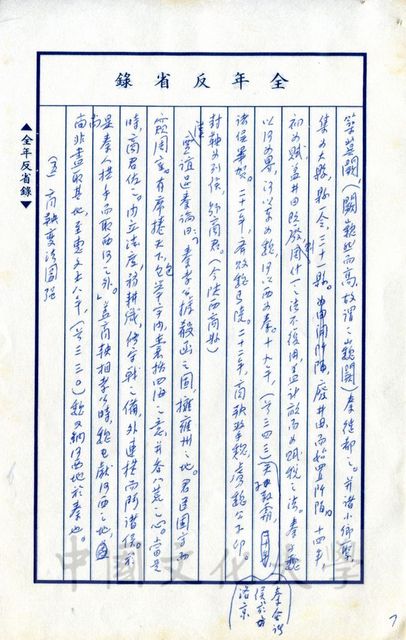 全年反省錄
築冀闕，(闕巍然而高，故謂之巍闕)秦徙都之。并諸小鄉聚
集為大縣，縣一令，三十一縣。為田開阡陌，廢井田而始置阡陌。十四年
初為賦，蓋井田既廢，則周什一之法不復用，蓋計畝而為賦稅之法。秦魏
以河為界，河以東為魏，河以西為秦。十九年，(前三四三)天子致霸，二十年
諸侯畢賀。二十一年，齊敗魏馬陵。二十二年，商鞅擊魏，虜魏公子卬。
封鞅為列侯，號商君。(今陝西商縣)
漢賈誼過秦論曰：「秦孝公據殽函之固，擁雍州之地。君臣固守而
窺周室，有席捲天下，包舉宇內，囊括四海之意，并吞八荒之心。當是
時，商君佐之。內立法度，務耕織，修守戰之備，外連橫而鬥諸侯，於
是秦人拱手而取西河之外。」蓋商鞅相孝公時，魏已獻河西之地，
尚非盡取其地，至惠文王八年，(前三三〇)魏又納河西地於秦也。
(五)商鞅變法圖強
全年反省錄
7
中國文化大學